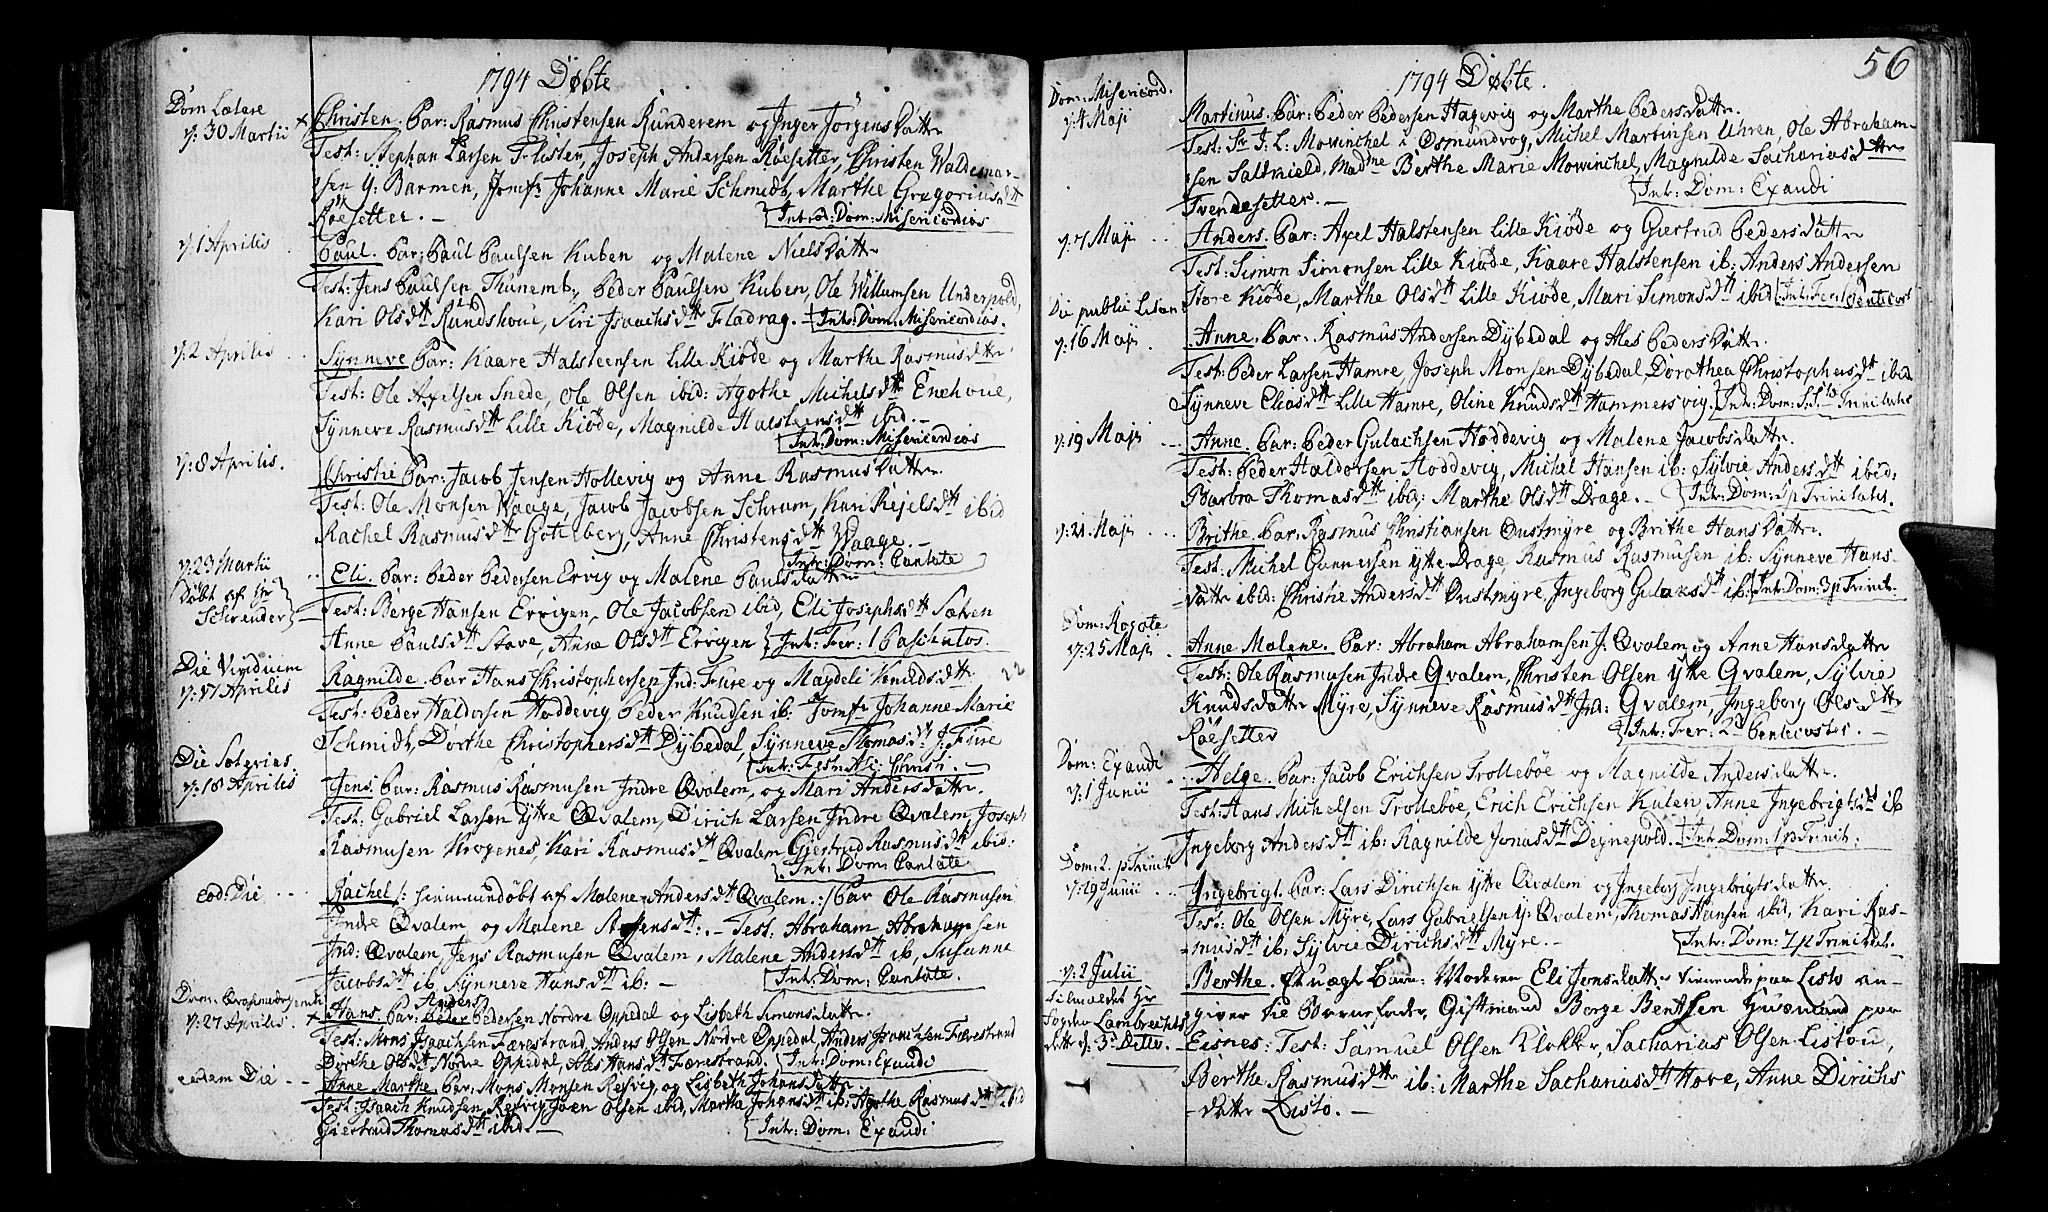 1794 Døbte
Dom Lætare
d: 30 Martii
Christen. Par: Rasmus Christensen Runderem og Inger Jörgens Dattr
Test: Stephan Larsen Flister, Joseph Andersen Röesetter, Christen Waldemar-
sen y: Barmen, Jomfr Johanne Marie Schmidt, Marthe Gregoriusdtt
Röesetter. - Introd: Dom: Misericordias
d: 1 Aprilis
Paul. Par: Paul Paulsen Kuben og Malene Niels Dattr
Test: Jens Paulsen Thunemb, Peder Paulsen Kuben, Ole Willumsen Underpold,
Kari Olsdtt Rundshoue, Siri Isaachsdtt Fladrag. Intr: Dom: Misericordias.
d: 2 Aprilis
Synneve Par: Kaare Halsteensen Lille Kiöde og Marthe Rasmusdattr
Test: Ole Axelsen Snede, Ole Olsen ibid: Agothe Michelsdtt Enehoue,
Synneve Rasmusdtt Lille Kiöde, Magnilde Halsteensdtt ibid. -
Intr: Dom: Misericordias
d: 8 Aprilis.
Christie Par: Jacob Jensen Hollevig og Anne Rasmus Dattr.
Test: Ole Monsen Waage, Jacob Jacobsen Schrum, Kari Rejelsdtt ibid
Rachel Rasmusdtt Gotteberg, Anne Christensdtt Waage. -
Intr: Dom: Cantate
d: 23 Martii
Døbt af Hr
Schreuder
Eli. Par: Peder Pedersen Ervig og Malene Paulsdattr
Test: Berge Hansen Ervigen, Ole Jacobsen ibid, Eli Josephsdtt Sætren
Anne Paulsdtt Stave, Anne Olsdtt Ervigen Intr: Fer: 1 Paschatos.
Die Viridium
d: 17 Aprilis
Ragnilde. Par Hans Christophersen Ind: Fure og Magdeli Knudsdattr
Test: Peder Haldorsen Hoddevig, Peder Knudsen ib: Jomfr Johanne Marie
Schmidt, Dorthe Christophersdtt Dybedal, Synneve Thomasdtt J. Fure
Intr: Festo Asc: Christi. -
Die Soterias.
d: 18 Aprilis
Jens. Par: Rasmus Rasmusen Indre Qvalem, og Mari Andersdattr.
Test: Gabriel Larsen ytte Qvalem, Dirich Larsen Indre Qvalem, Joseph
Rasmusen Krogenes, Kari Rasmusdtt Qvalem, Giertrud Rasmusdtt ibid:
Intr: Dom: Cantate
eod: Die
Rachel /: hiemmedöbt af Malene Andersdtt Qvalem :/ Par Ole Rasmusen
Indre Qvalem og Malene dtt: - Test: Abraham Abrahamsen
Ind: Qvalem, Jens Rasmusen Qvalem, Malene Andersdtt ib, Susanne
Jacobsdtt ib, Synneve Hansdtt ib: - Intr: Dom: Cantate.
Dom: Qvasimodogeniti
d: 27 Aprilis.
Anders
Hans. Par: Peder Pedersen Nordre Oppedal og Lisbeth Simonsdattr.
Test: Mons Isaachsen Færestrand, Anders Olsen Nordre Oppedal, Anders Isaachsen Færestrand
Dorthe Olsdtt Nordre Oppedal, Ales Hansdtt Færestrand. Intr: Dom: Exaudi
eodem Die
Anne Marthe. Par: Mons Monsen Rejsvig og Lisbeth Johans Dattr
Test: Isaach Knudsen Rejsvig, Joen Olsen ibid, Martha Johansdtt ib: Agothe Rasmusdtt ibid
Giertrud Thomasdtt ibid. - Intr: Dom: Exaudi
56
1794 Døbte.
Dom: Misericord.
d: 4 Maji
Martinus. Par: Peder Pedersen Hagevig og Marthe Pedersdattr.
Test: Sr J: L: Mowinchel i Osmundvog, Michel Martinsen Uhren, Ole Abraham-
sen Saltskield, Madme Berthe Marie Mowinchel, Magnilde Sachariasdattr
Tvendesetter. - Intr: Dom: Exaudi
d: 7 Maji
Anders. Par: Axel Halstensen Lille Kiöde og Giertrud Pedersdattr
Test: Simon Simonsen Lille Kiöde, Kaare Halstensen ib: Anders Andersen
Store Kiöde, Marthe Olsdtt Lille Kiöde, Mari Simonsdtt ibid Intr: Fer: 1 Penticost
Die public Litan:
d: 16 Maji.
Anne. Par: Rasmus Andersen Dybedal og Ales Pedersdattr.
Test: Peder Larsen Hamre, Joseph Monsen Dybedal, Dorothea Christophersdtt ibid
Synneve Eliasdtt Lille Hamre, Oline Knudsdtt Hammersvig. Intr: Dom: S.S. Trinitatis
d: 19 Maji
Anne. Par: Peder Gulachsen Hoddevig og Malene Jacobsdattr.
Test: Peder Haldorsen Hoddevig, Michel Hansen ib: Sylvie Andersdtt ibid:
Barbra Thomasdtt ibid: Marthe Olsdtt Drage. - Intr: Dom: 1 p Trinitatis.
d: 21 Maji
Brithe. Par: Rasmus Christiansen Oustmyre og Brithe Hans Dattr.
Test: Michel Gunnersen ytte Drage, Rasmus Rasmusen ib: Synneve Hans-
dattr ibid: Christie Andersdtt Oustmyre, Ingeborg Gulaksdtt ib: Intr: Dom: 3 p Trinit.
Dom: Rogate
d: 25 Maji
Anne Malene. Par: Abraham Abrahamsen J: Qvalem og Anne Hansdattr
Test: Ole Rasmusen Indre Qvalem, Christen Olsen ytte Qvalem, Sylvie
Knudsdattr Myre, Synneve Rasmusdtt Ind: Qvalem, Ingeborg Olsdtt
Röesetter Intr: Fer: 2d Pentecostes. -
Dom: Exaudi
d: 1 Junii
Helge. Par: Jacob Erichsen Trolleböe og Magnilde Andersdattr.
Test: Hans Michelsen Trolleböe, Erich Erichsen Kulen, Anne Ingebrigtsdtt ib
Ingeborg Andersdtt ib: Ragnilde Jonasdtt Degnepold. Intr: Dom: 1 p Trinit:
Dom: 2 p Trinit
d: 29 Junii
Ingebrigt. Par: Lars Dirichsen ytte Qvalem og Ingeborg Ingebrigtsdattr.
Test: Ole Olsen Myre, Lars Gabrielsen y: Qvalem, Thomas Hansen ibid, Kari Ras-
musdtt ib: Sylvie Dirichsdtt Myre. - Intr: Dom: 7 p Trinitat.
d: 2 Julii
tilmeldet Hr
Fogden Lambrechts
datt d: 3 Dito.
Berthe. Et uægte Barn: Moderen Eli Jonsdattr tienende paa Listo an-
giver til Barnefader, Gift mand Børge Bentsen Huusmand paa
Eisnes: Test: Samuel Olsen Klokker, Sacharias Olsen Listou,
Berthe Rasmusdtt ib: Marthe Sachariasdtt Hove, Anne Dirichs
dattr Listo. -